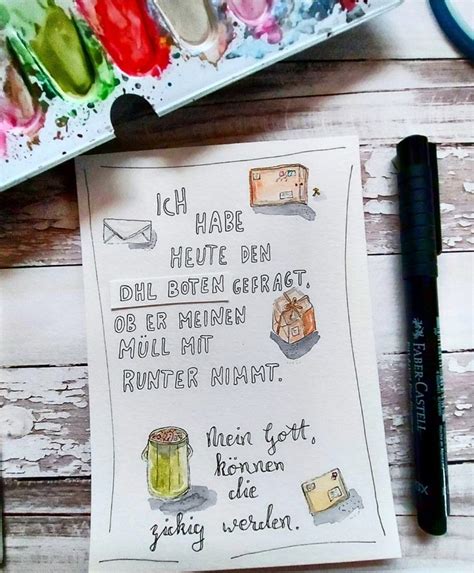 ICH
HABE
HEUTE DEN
DHL BOTEN GEFRAGT,
OB ER MEINEN
MÜLL MIT
RUNTER NIMMT.
Mein Gott,
können
die
zickig werden.
FABER-CASTELL